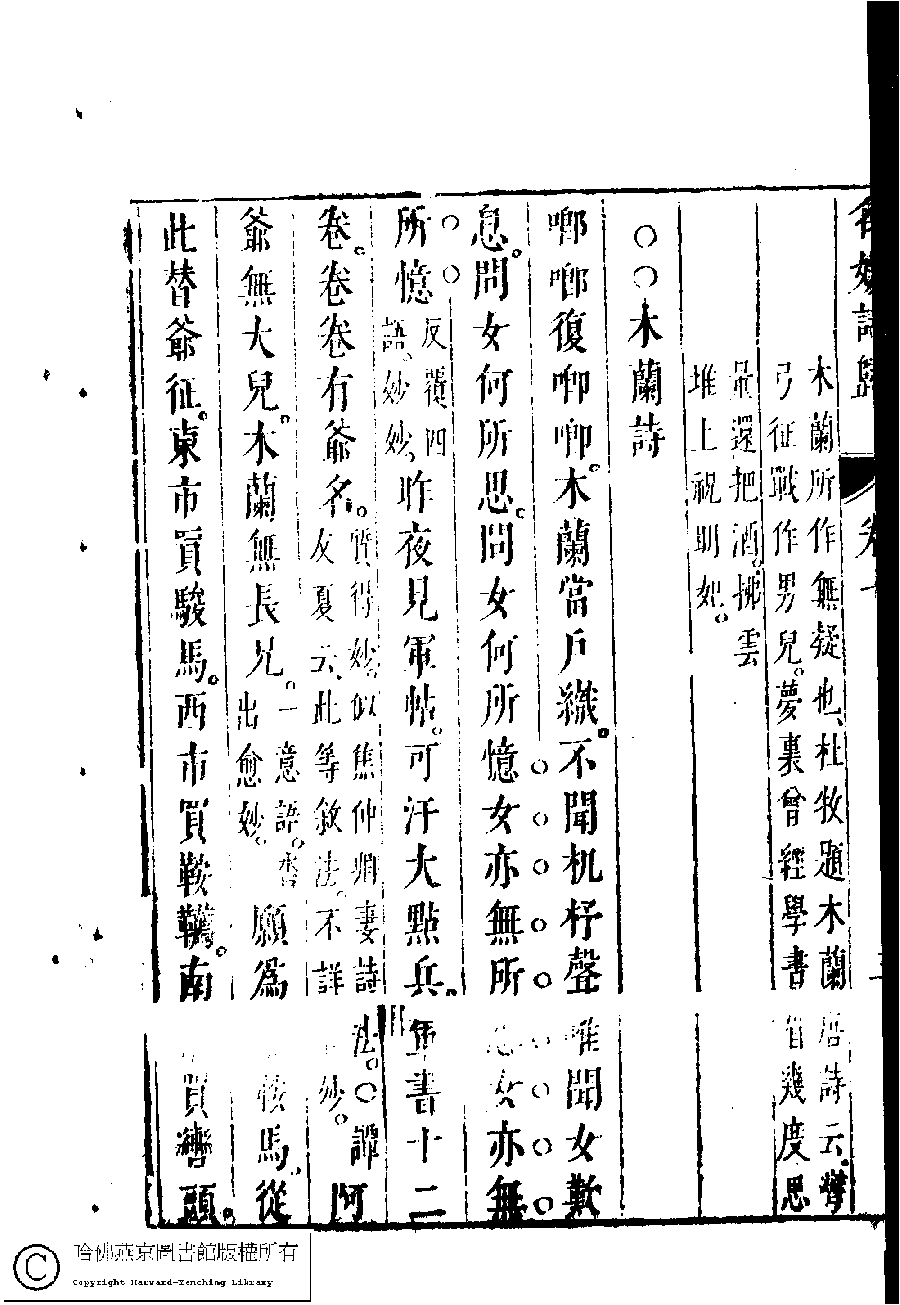 名媛詩歸
木蘭所作無疑也、杜牧題木蘭詩云彎
弓征戰作男兒。夢裏曾經學畫眉幾度思
還把酒。拂雲
堆上祝明妃。
○○木蘭詩
唧唧復唧唧。木蘭當戶織。不聞机杼聲唯聞女歎
息。問女何所思。問女何所憶女亦無所思女亦無
所憶反覆四語、妙妙、昨夜見軍帖。可汗大點兵。軍書十二
卷。卷卷有爺名。質得妙。似焦仲卿妻詩法。○譚友夏云、此等敘法。不詳妙。阿
爺無大兒。木蘭無長兄。一意語。沓出愈妙。願為鞍馬。從
此替爺征。東市買駿馬。西市買鞍韉。南買轡頭。
哈佛燕京圖書館版權所有
Copyright Harvard-Yenching Library